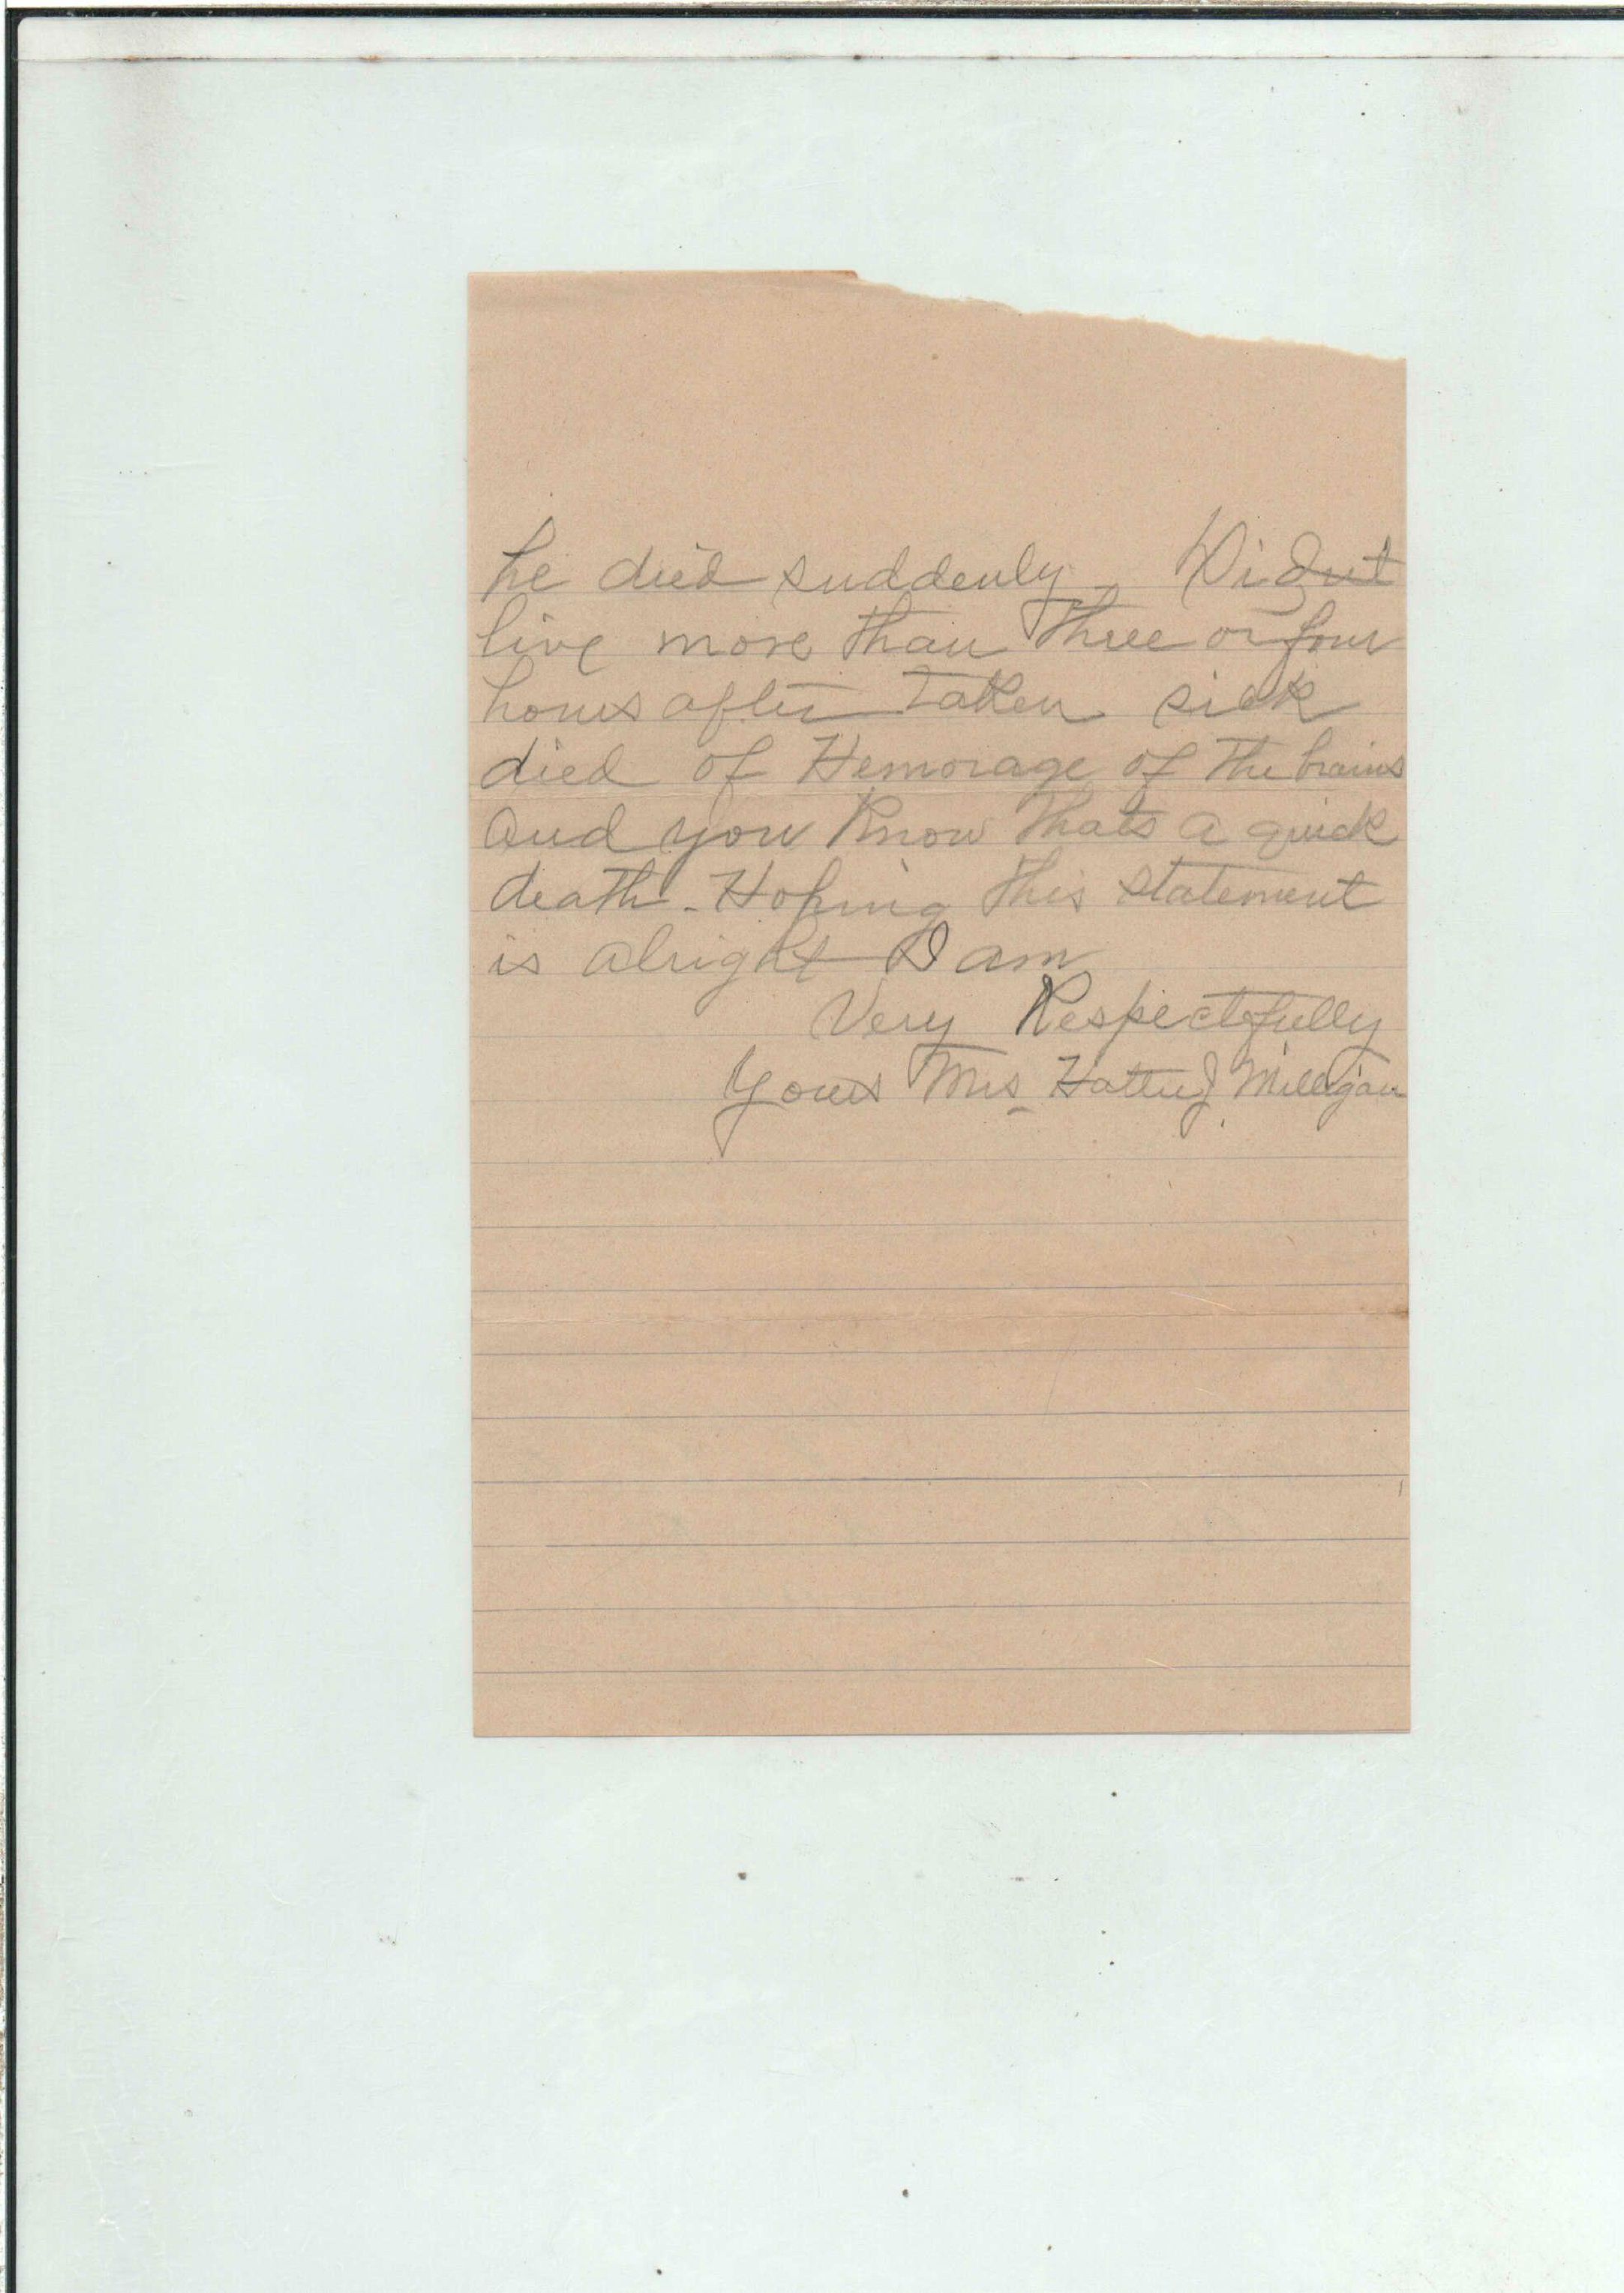 he died suddenly, Didnt
live more than three or four
hours after taken sick
died of Hemorage of the brains
and you know thats a quick
death. Hoping this statement
is alright I am
Very Respectfully
Yours Mrs Hattie J. Milligan